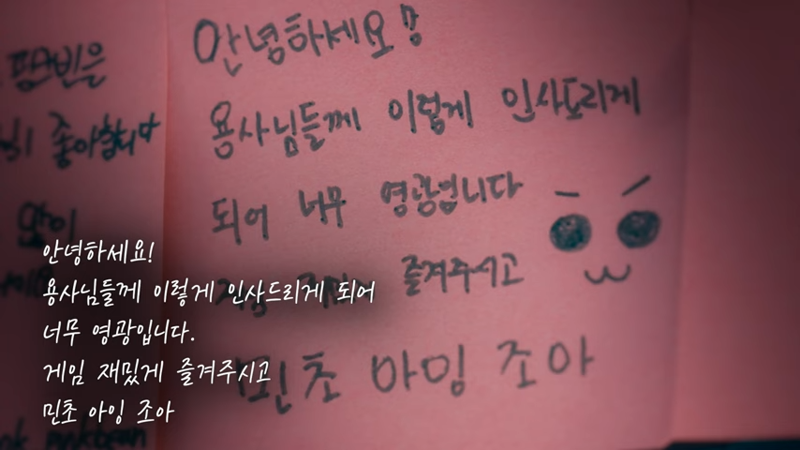 핑크빈은
좋아합니다
많이
안녕하세요!
용사님들께 이렇게 인사드리게
되어 너무 영광입니다
즐겨주시고
민초 아잉 조아
안녕하세요!
용사님들께 이렇게 인사드리게 되어
너무 영광입니다.
게임 재밌게 즐겨주시고
민초 아잉 조아